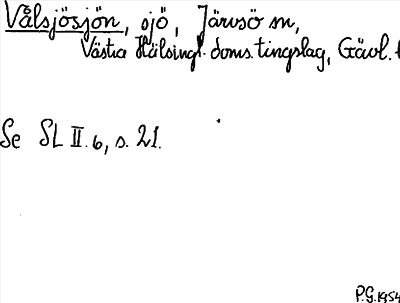 Vålsjösjön, sjö, Järvsö sn,
Västra Hälsingl. doms. tingslag, Gävl. l
Se SL II.6, s. 21.
P.G. 1954